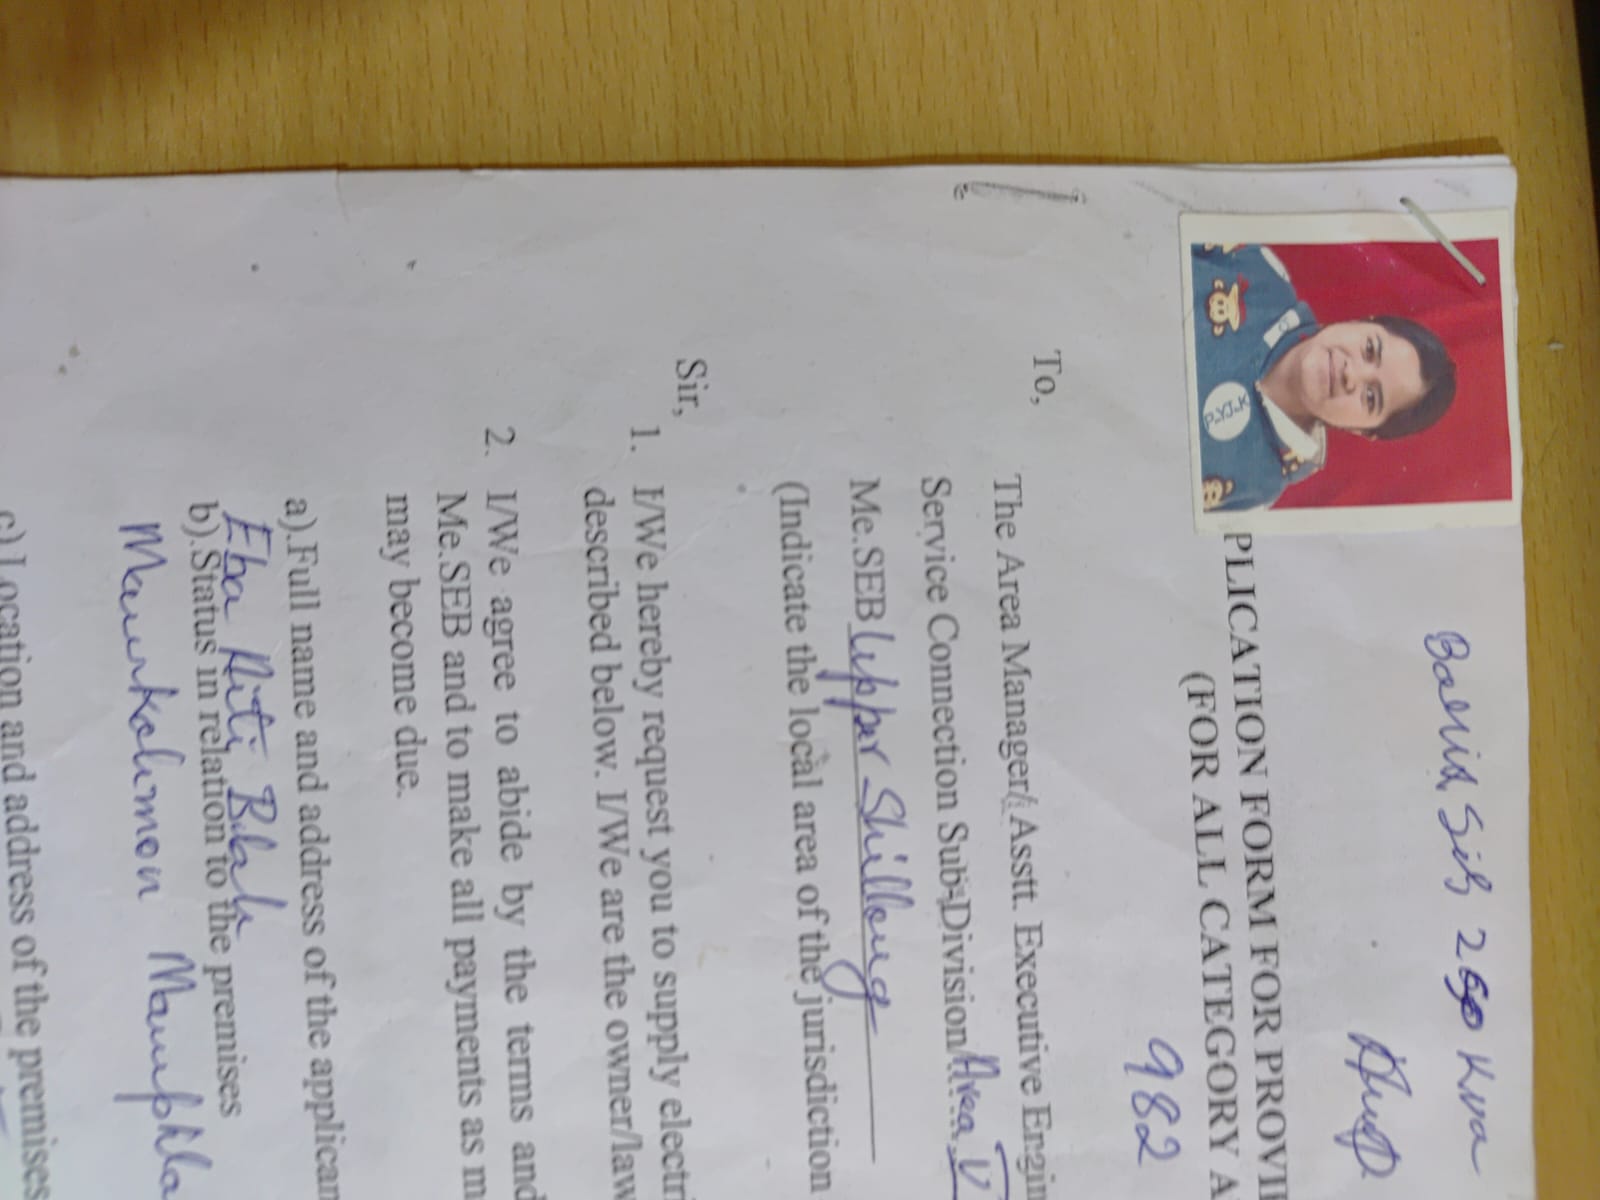 250 Kva
PLICATION FORM FOR PROVI
(FOR ALL CATEGORY A
982
To,
The Area Manager/ Asstt. Executive Engin
Service Connection Sub-Division/Area V
Me.SEB Upper Shillong
(Indicate the local area of the jurisdiction
Sir,
1. I/We hereby request you to supply electri
described below. I/We are the owner/law
2. I/We agree to abide by the terms and
Me.SEB and to make all payments as m
may become due.
a).Full name and address of the applican
Eba Riti Blah
b).Status in relation to the premises
Mawkohmon Mawphla
c) Location and address of the premises